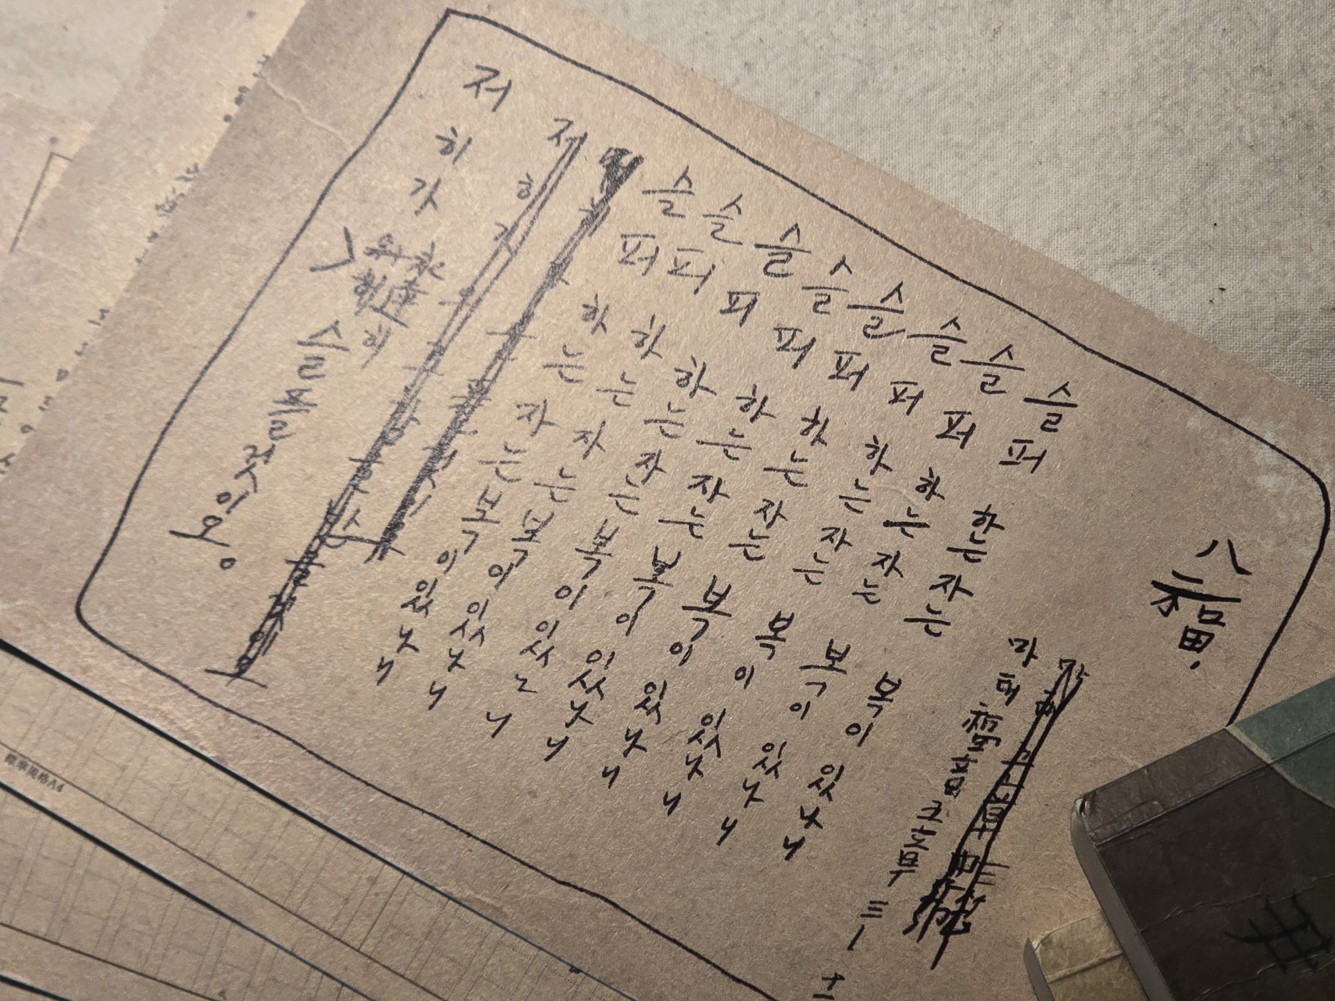 八福
마태福音五章 三ー十
슬퍼하는자는 복이있나니
슬퍼하는자는 복이있나니
슬퍼하는자는 복이있나니
슬퍼하는자는 복이있나니
슬퍼하는자는 복이있나니
슬퍼하는자는 복이있나니
슬퍼하는자는 복이있나니
슬퍼하는자는 복이있나니
저히가 永遠히 슬플것이오。
標準規格A4